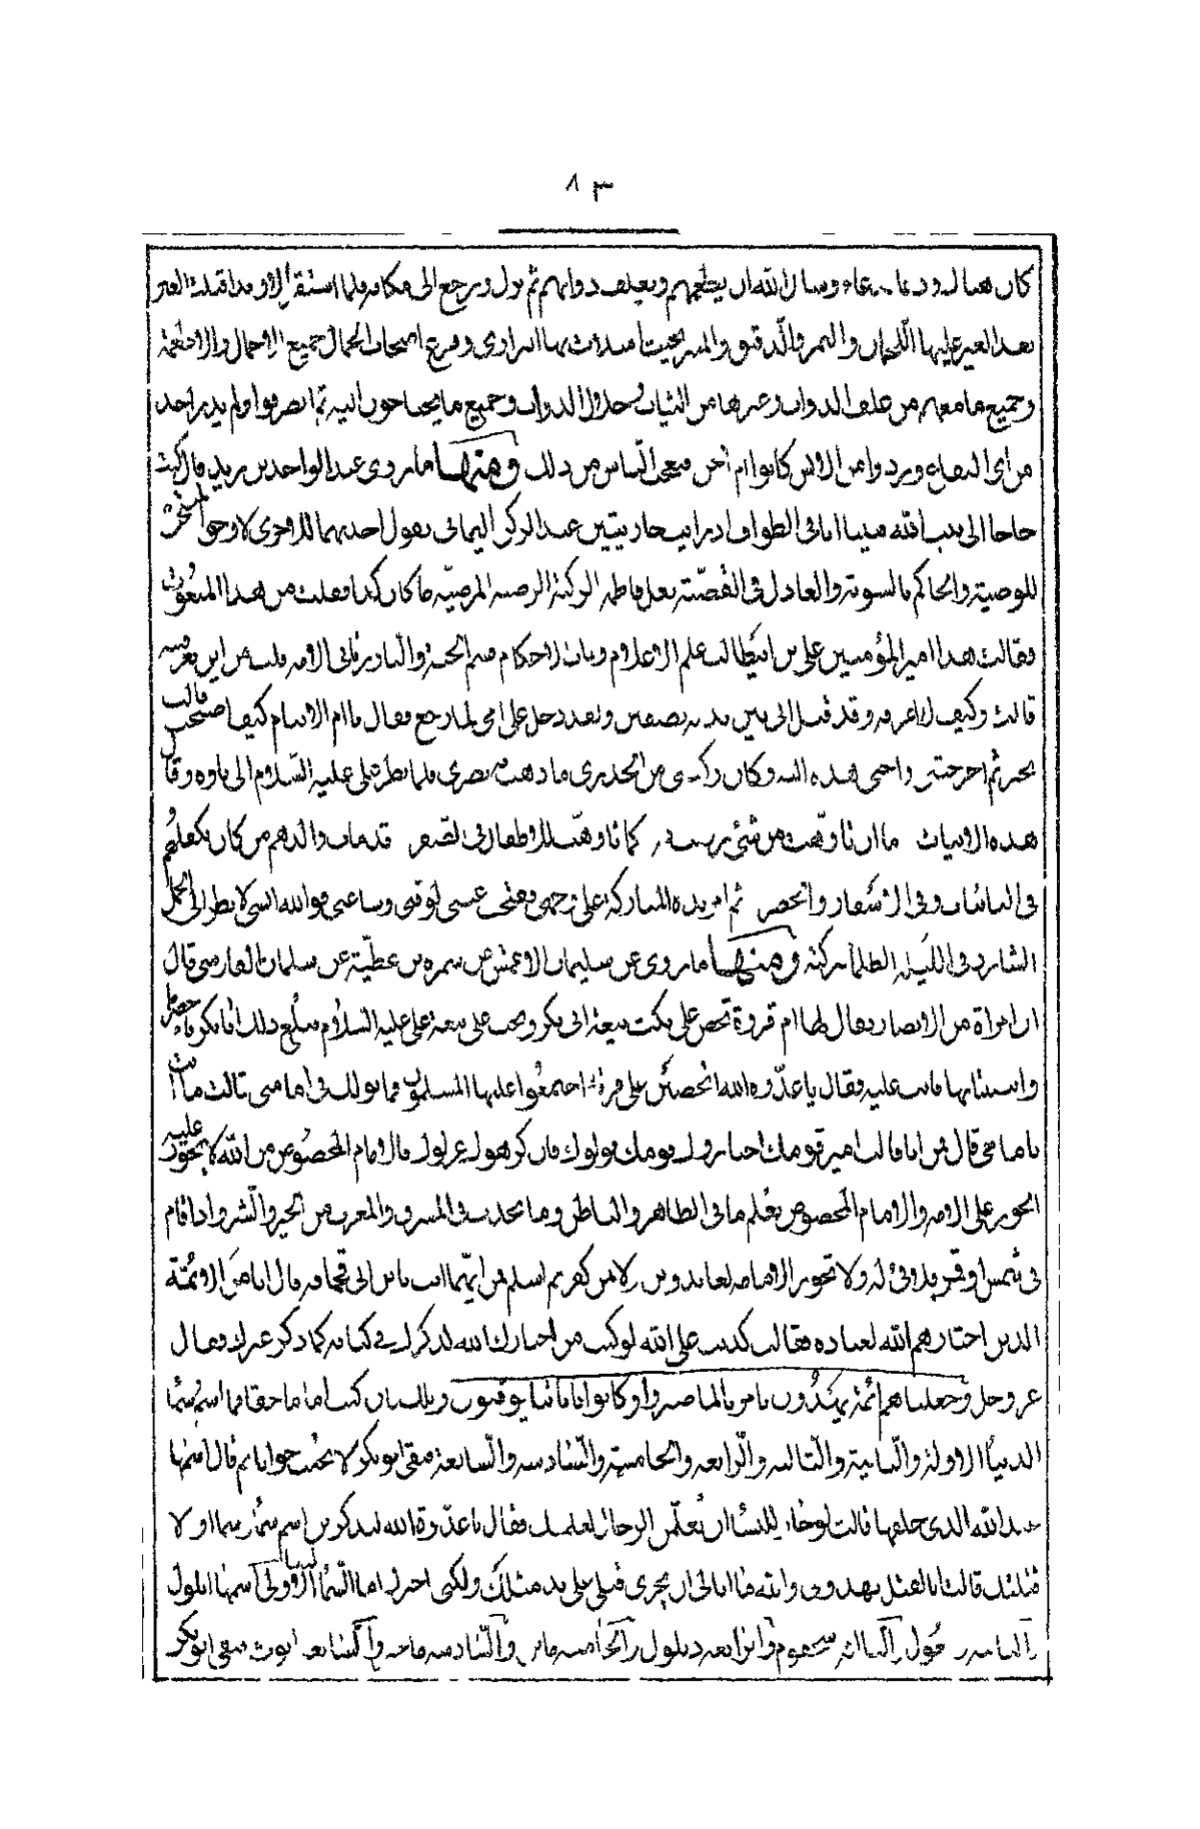 ٨٣
كان هناك ودعا بدعاء وسأل الله ان يطعمهم ويعلف دوابهم ثم نزل ورجع الى مكانه فما استقر الا وقد اقبلت العير
بعد العير عليها اللحمان والتمر والدقيق والمير بحيث امتلات بها البراري وفرغ اصحاب الجمال جميع الاحمال والاطعمة
وجميع ما معهم من علف الدواب وغيرها من الثياب وجلال الدواب وجميع ما يحتاجون اليه ثم انصرفوا ولم يدر احد
من اى البقاع وردوا من الانس كانوا ام الجن فتعجب الناس من ذلك ومنها ما روى عبد الواحد بن زيد قال كنت
حاجا الى بيت الله فبينا انا فى الطواف اذ رايت جاريتين عند الركن اليمانى تقول احديهما للاخرى لا وحق المنتجب
للوصية والحاكم بالسوية والعادل فى القضية بعل فاطمة الزكية الرضية المرضية ما كان كذا فقلت من هذا المنعوت
فقالت هذا امير المؤمنين على بن ابيطالب علم الاعلام وباب الاحكام قسيم الجنة والنار ربانى الامة فقلت من اين تعرفينه
قالت وكيف لا اعرفه وقد قتل ابى بين يديه بصفين ولقد دخل على امى لما رجع فقال يا ام الايتام كيف اصبحت قالت
بخير ثم اخرجتنى واختى هذه اليه وكان ركبنى من الجدرى ما ذهب به بصرى فلما نظر على عليه السلام الى تاوه وقال
هذه الابيات ما ان تاوهت من شئ رزيت به كما تاوهت للاطفال فى الصغر قد مات والدهم من كان يكفلهم
فى النائبات وفى الاسفار والحضر ثم امر يده المباركة على وجهى فتفتحت عينى لوقتى وساعتى فوالله انى لانظر الى الجمل
الشارد فى الليلة الظلماء ببركته ومنها ما روى عن سليمان الاعمش عن سمرة بن عطية عن سلمان الفارسى قال
ان امراة من الانصار يقال لها ام فروة تحض على نكث بيعة ابى بكر وتحث على بيعة على عليه السلام فبلغ ذلك ابا بكر فاحضرها
واستتابها فابت عليه فقال يا عدوة الله اتحضين على فرقة اجتمعوا عليها المسلمون فما قولك فى امامتى قالت ما انت
بامامى قال فمن انا قالت امير قومك اختاروك قومك وولوك فان كرهوك عزلوك فالامام المخصوص من الله لا يجوز عليه
الجور على الامة والامام المخصوص يعلم ما فى الظاهر والباطن وما يحدث فى المشرق والمغرب من الخير والشر واذا قام
فى شمس او قمر فلا فئ له ولا تجوز الامامة لعابد وثن ولا من كفر ثم اسلم فمن ايهما انت يابن ابى قحافة قال انا من الائمة
الذين اختارهم الله لعباده فقالت كذبت على الله لو كنت ممن اختارك الله لذكرك فى كتابه كما ذكر غيرك فقال
عز وجل وجعلناهم ائمة يهدون بامرنا لما صبروا وكانوا باياتنا يوقنون ويلك ان كنت اماما حقا فما اسم سماء
الدنيا الاولة والثانية والثالثة والرابعة والخامسة والسادسة والسابعة فبقى ابو بكر لا يحير جوابا ثم قال اسمها
عند الله الذى خلقها قالت لو جاز للنساء ان تعلم الرجال لعلمتك فقال يا عدوة الله لتذكرن اسم سماء سماء او لا
قتلنك قالت ابالقتل تهددنى والله ما ابالى ان يجرى قتلى على يد مثلك ولكنى اخبرك اما السماء الدنيا الاولى اسمها ايلول